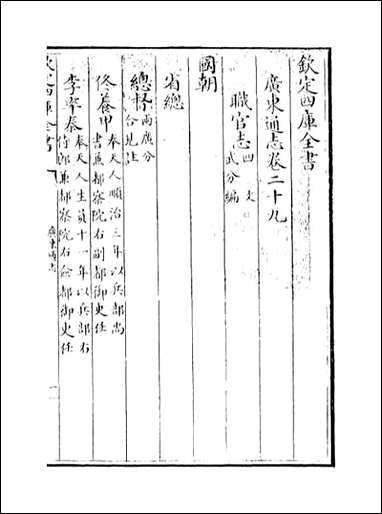 欽定四庫全書
廣東通志卷二十九
職官志四 文武分編
國朝
省總
總督 兩廣分合見注
佟養甲 奉天人順治三年以兵部尚
書兼都察院右副都御史任
李率泰 奉天人生員十一年以兵部右
侍郎兼都察院右僉都御史任
欽定四庫全書
廣東通志